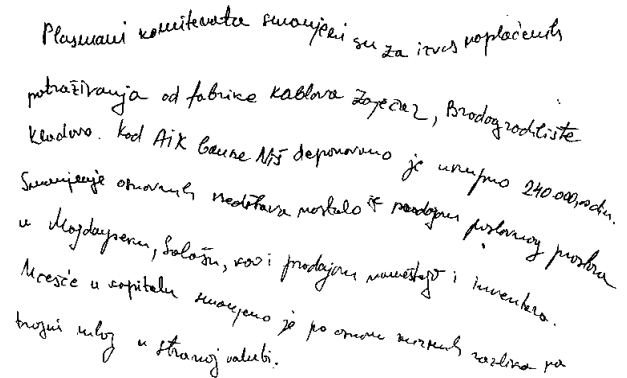 Plasmani komitenata smanjeni su za iznos naplaćenih
potraživanja od fabrike kablova Zaječar, Brodogradilište
Kladovo. Kod AIK banke Niš deponovano je ukupno 240.000,00 din.
Smanjenje osnovnih sredstava nastalo je prodajom poslovnog prostora
u Majdanpeku, Salašu, kao i prodajom nameštaja i inventara.
Učešće u kapitalu smanjeno je po osnovu kursnih razlika na
trajni ulog u stranoj valuti.